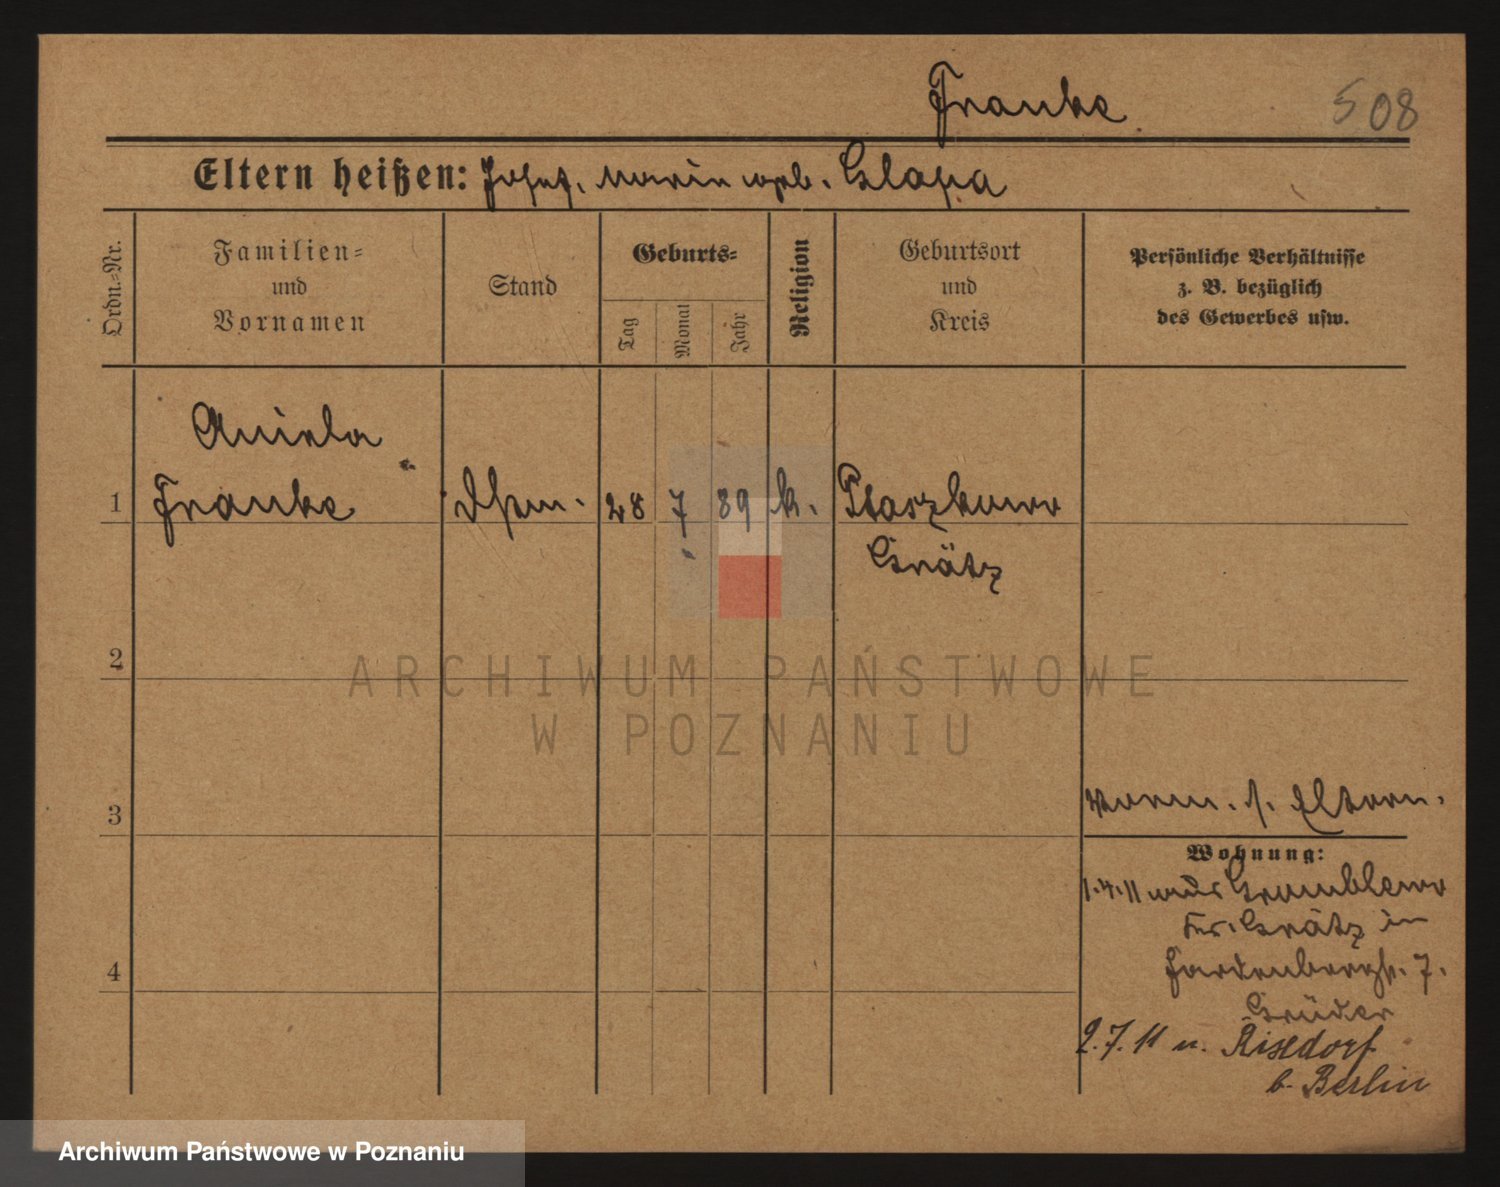 Franke
508
Eltern heißen: Josef. Maria geb. Glapa
Ordn.-Nr.
Familien-
und
Vornamen
Stand
Geburts-
Tag
Monat
Jahr
Religion
Geburtsort
und
Kreis
Persönliche Verhältnisse
z. B. bezüglich
des Gewerbes usw.
Aniela
1 Franke 28 7 89 k. Ptaszkowo
Grätz
2
ARCHIWUM PAŃSTWOWE
W POZNANIU
3
Verm. s. Eltern.
Wohnung:
1.4.11 aus Gromblewo
Kr. Grätz in
7.
4
2.7.11 n. Rixdorf
b. Berlin
Archiwum Państwowe w Poznaniu